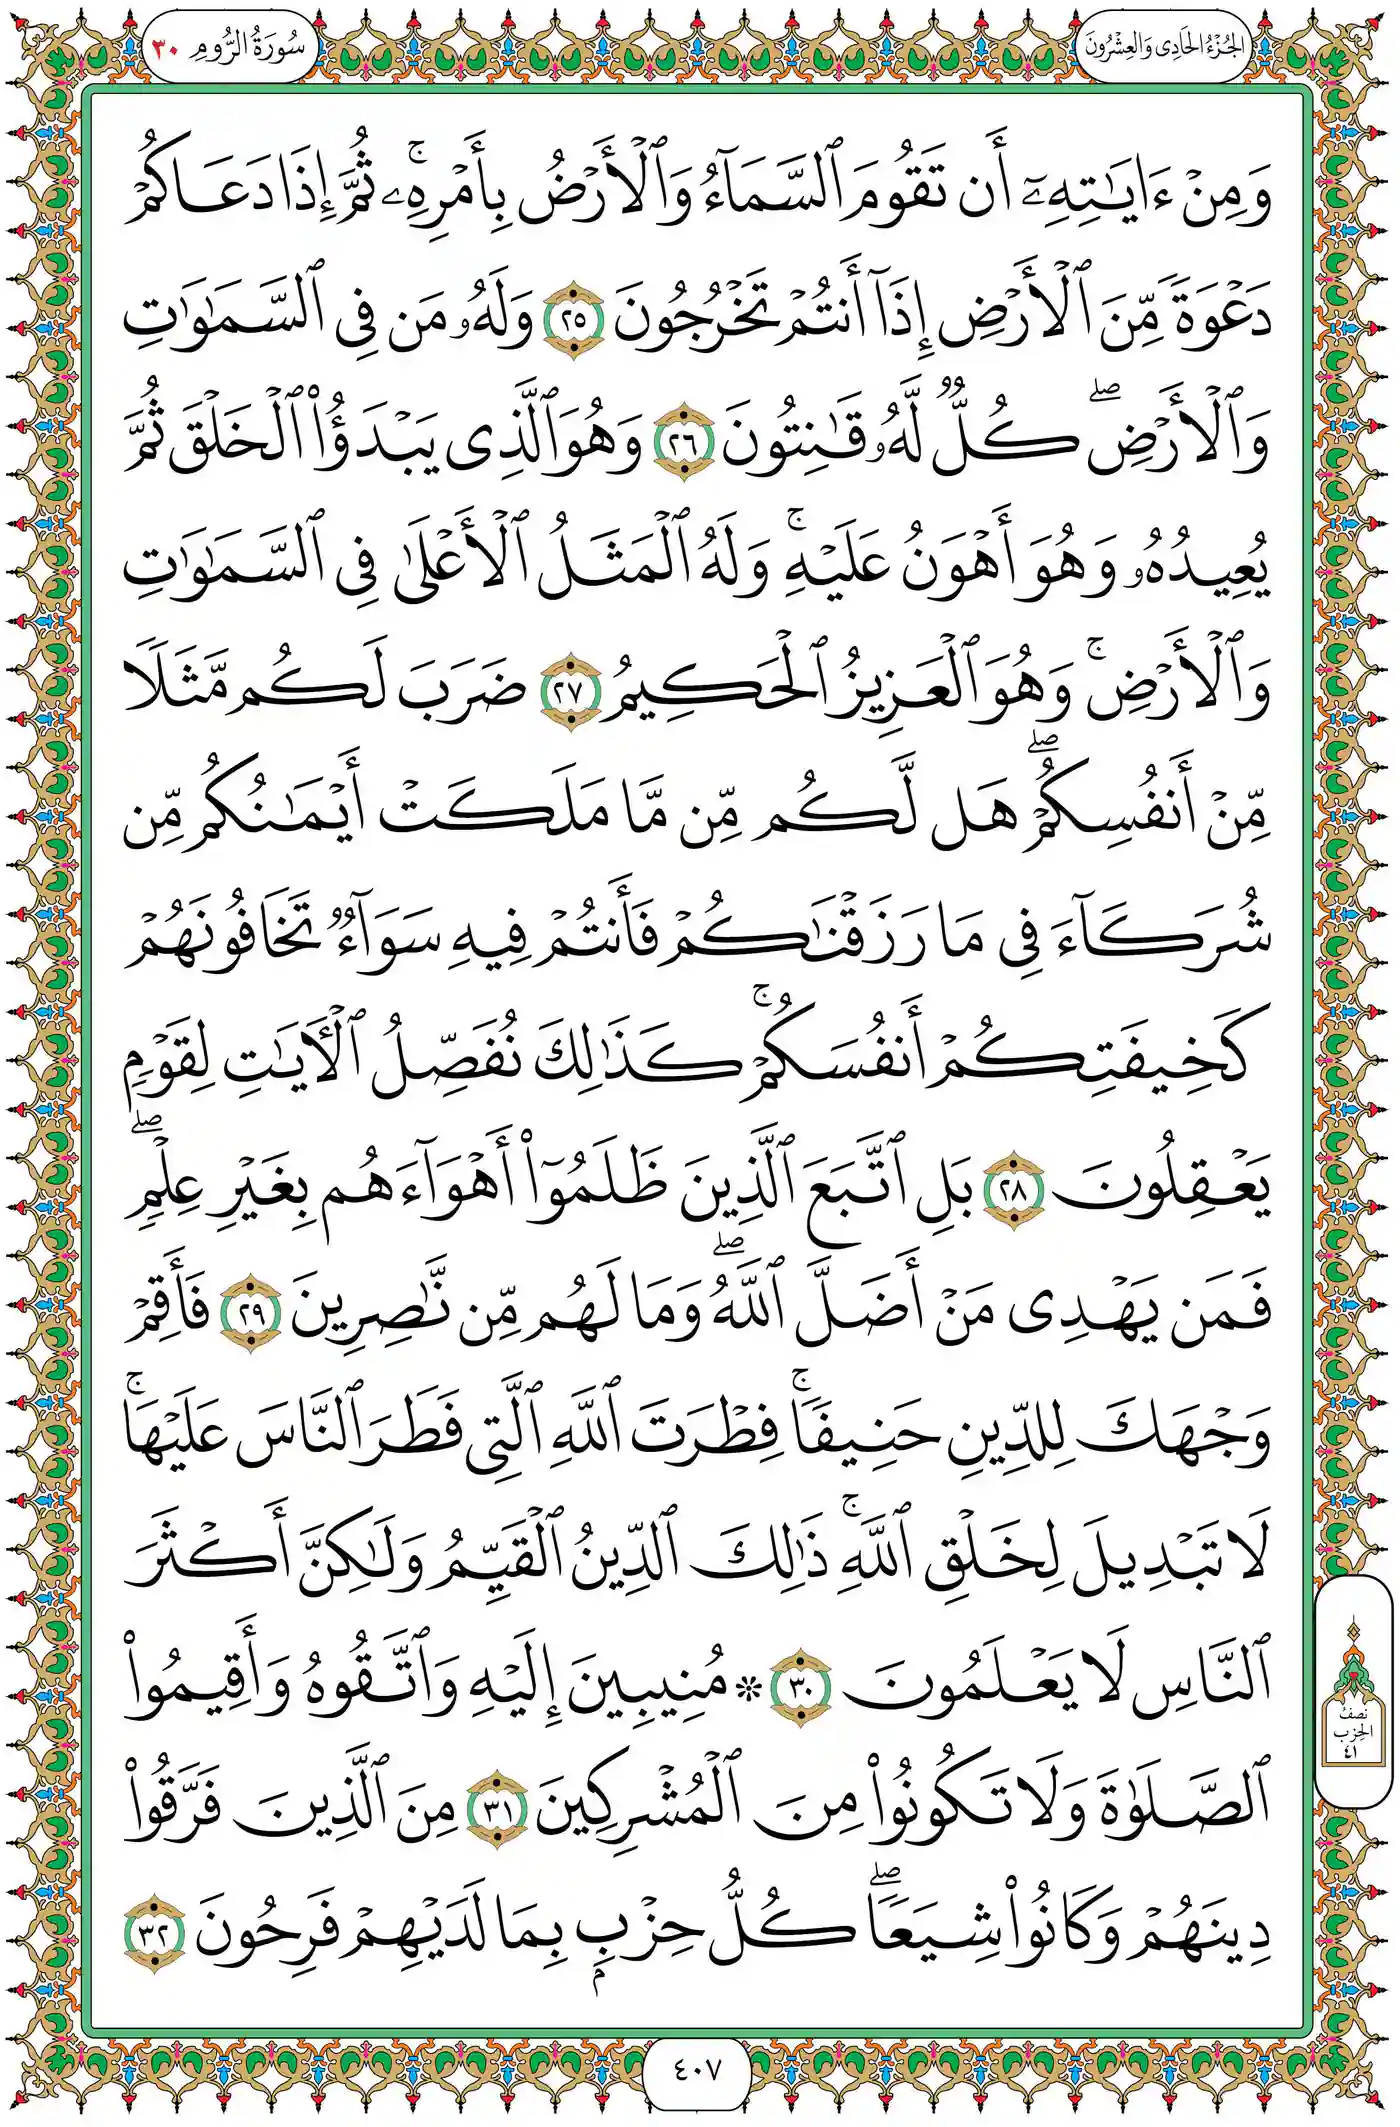 الجُزْءُ الحَادِي وَالعِشْرُونَ
سُورَةُ الرُّومِ ٣٠
وَمِنْ ءَايَـٰتِهِۦٓ أَن تَقُومَ ٱلسَّمَآءُ وَٱلْأَرْضُ بِأَمْرِهِۦۚ ثُمَّ إِذَا دَعَاكُمْ
دَعْوَةً مِّنَ ٱلْأَرْضِ إِذَآ أَنتُمْ تَخْرُجُونَ ٢٥ وَلَهُۥ مَن فِى ٱلسَّمَـٰوَٰتِ
وَٱلْأَرْضِۖ كُلٌّ لَّهُۥ قَـٰنِتُونَ ٢٦ وَهُوَ ٱلَّذِى يَبْدَؤُا۟ ٱلْخَلْقَ ثُمَّ
يُعِيدُهُۥ وَهُوَ أَهْوَنُ عَلَيْهِۚ وَلَهُ ٱلْمَثَلُ ٱلْأَعْلَىٰ فِى ٱلسَّمَـٰوَٰتِ
وَٱلْأَرْضِۚ وَهُوَ ٱلْعَزِيزُ ٱلْحَكِيمُ ٢٧ ضَرَبَ لَكُم مَّثَلًا
مِّنْ أَنفُسِكُمْۖ هَل لَّكُم مِّن مَّا مَلَكَتْ أَيْمَـٰنُكُم مِّن
شُرَكَآءَ فِى مَا رَزَقْنَـٰكُمْ فَأَنتُمْ فِيهِ سَوَآءٌ تَخَافُونَهُمْ
كَخِيفَتِكُمْ أَنفُسَكُمْۚ كَذَٰلِكَ نُفَصِّلُ ٱلْـَٔايَـٰتِ لِقَوْمٍ
يَعْقِلُونَ ٢٨ بَلِ ٱتَّبَعَ ٱلَّذِينَ ظَلَمُوٓا۟ أَهْوَآءَهُم بِغَيْرِ عِلْمٍۖ
فَمَن يَهْدِى مَنْ أَضَلَّ ٱللَّهُۖ وَمَا لَهُم مِّن نَّـٰصِرِينَ ٢٩ فَأَقِمْ
وَجْهَكَ لِلدِّينِ حَنِيفًاۚ فِطْرَتَ ٱللَّهِ ٱلَّتِى فَطَرَ ٱلنَّاسَ عَلَيْهَاۚ
لَا تَبْدِيلَ لِخَلْقِ ٱللَّهِۚ ذَٰلِكَ ٱلدِّينُ ٱلْقَيِّمُ وَلَـٰكِنَّ أَكْثَرَ
ٱلنَّاسِ لَا يَعْلَمُونَ ٣٠ * مُنِيبِينَ إِلَيْهِ وَٱتَّقُوهُ وَأَقِيمُوا۟
ٱلصَّلَوٰةَ وَلَا تَكُونُوا۟ مِنَ ٱلْمُشْرِكِينَ ٣١ مِنَ ٱلَّذِينَ فَرَّقُوا۟
دِينَهُمْ وَكَانُوا۟ شِيَعًاۖ كُلُّ حِزْبٍۭ بِمَا لَدَيْهِمْ فَرِحُونَ ٣٢
نصف
الحزب
٤١
٤٠٧